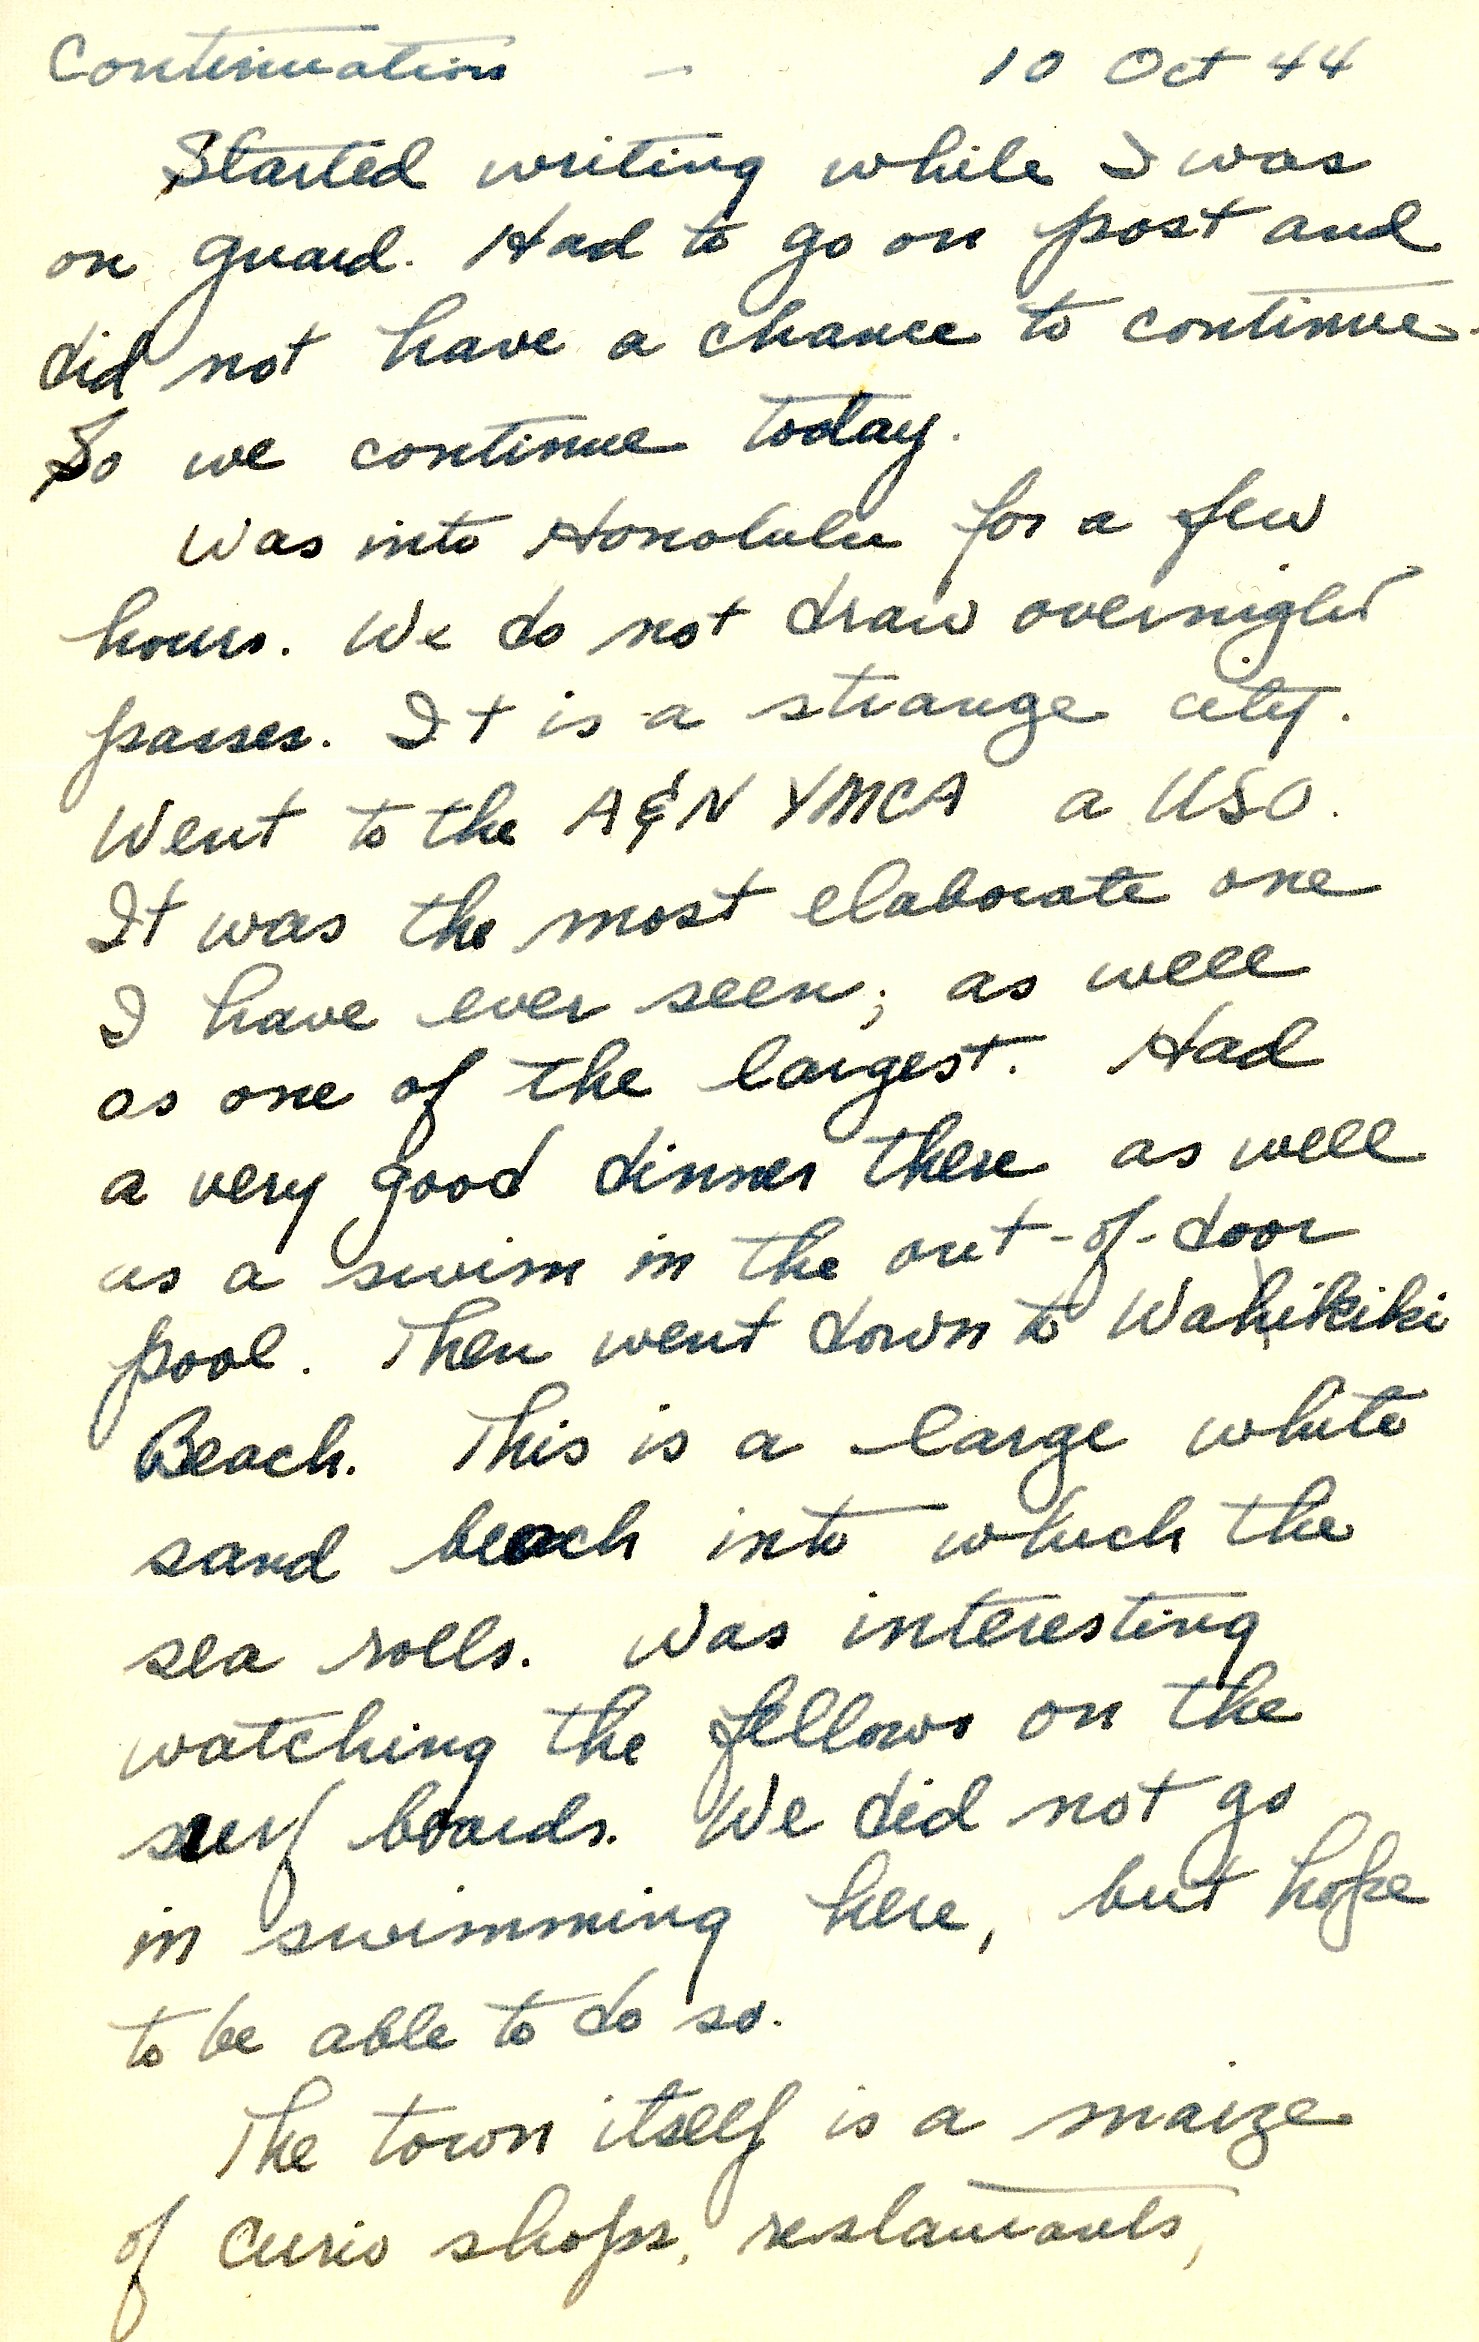 Continuation - 10 Oct 44
Started writing while I was
on guard. Had to go on post and
did not have a chance to continue.
So we continue today.
Was into Honolulu for a few
hours. We do not draw overnight
passes. It is a strange city.
Went to the A&N YMCA a USO.
It was the most elaborate one
I have ever seen, as well
as one of the largest. Had
a very good dinner there as well
as a swim in the out-of-door
pool. Then went down to Wahikiki
Beach. This is a large white
sand beach into which the
sea rolls. Was interesting
watching the fellows on the
surf boards. We did not go
in swimming here, but hope
to be able to do so.
The town itself is a maize
of curio shops, restaurants,